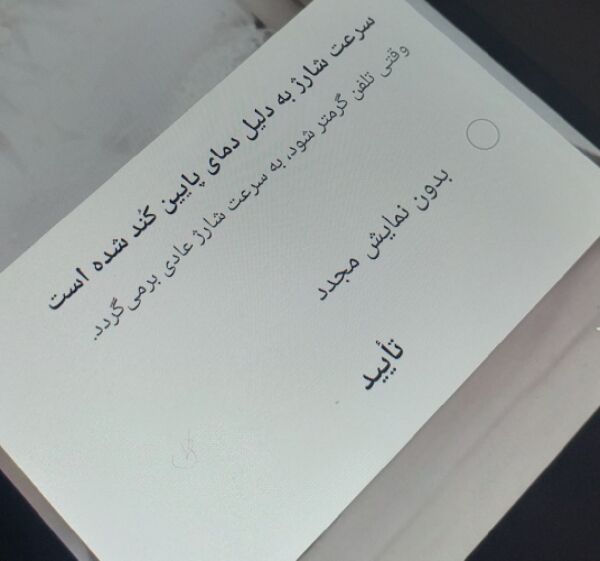 سرعت شارژ به دلیل دمای پایین کُند شده است
وقتی تلفن گرمتر شود، به سرعت شارژ عادی برمی‌گردد.
بدون نمایش مجدد
تأیید